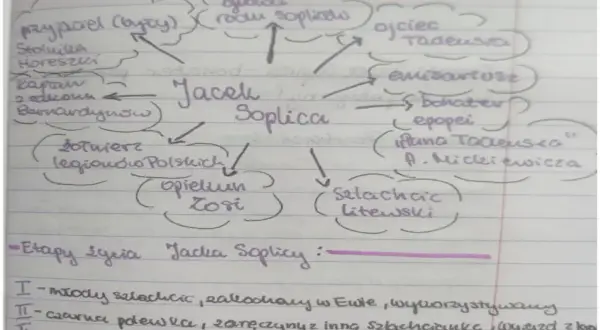 rodu Sopliców
przyjaciel (były)
Stolnika
Horeszki
ojciec
Tadeusza
emisariusz
kapłan
z zakonu
Bernardynów
Jacek
Soplica
bohater
epopei
„Pana Tadeusza"
A. Mickiewicza
żołnierz
legionów Polskich
opiekun
Zosi
szlachcic
litewski
-Etapy życia Jacka Soplicy:
I - młody szlachcic, zakochany w Ewie, wykorzystywany
II - czarna polewka, zaręczyny z inną szlachcianką, wyjazd z